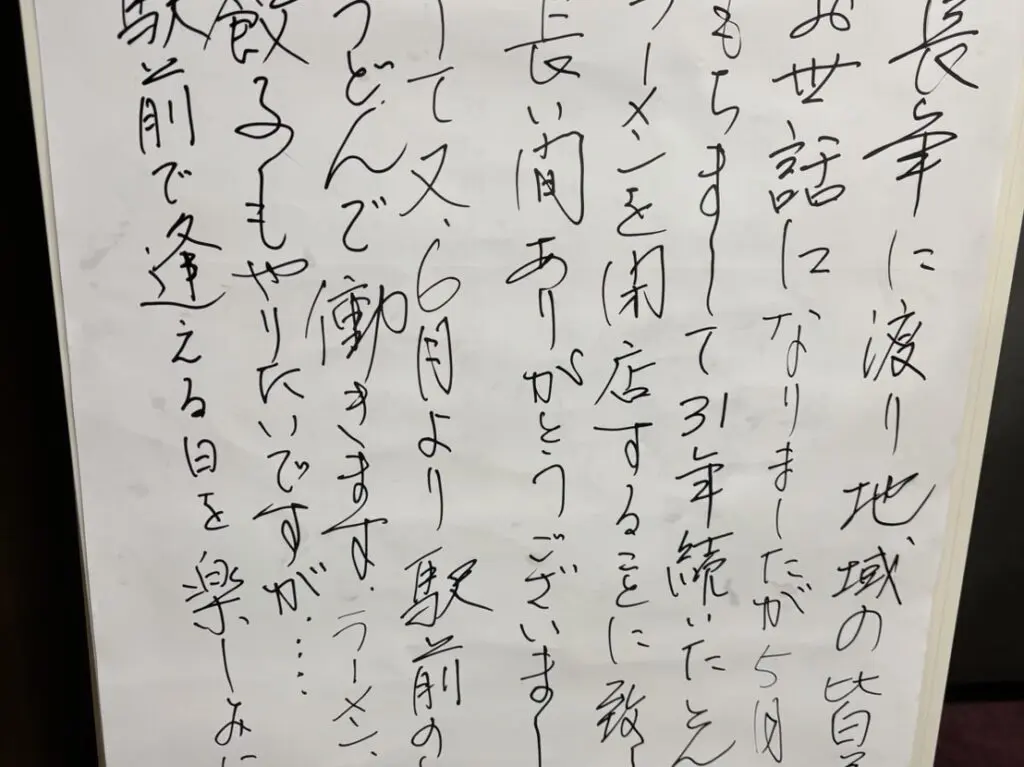 長年に渡り地域の皆
お世話になりましたが5月
もちまして31年続いたとん
ラーメンを閉店することに致し
長い間ありがとうございまし
して又、6月より駅前の
うどんで働きます。ラーメン、
餃子もやりたいですが……
駅前で逢える日を楽しみに